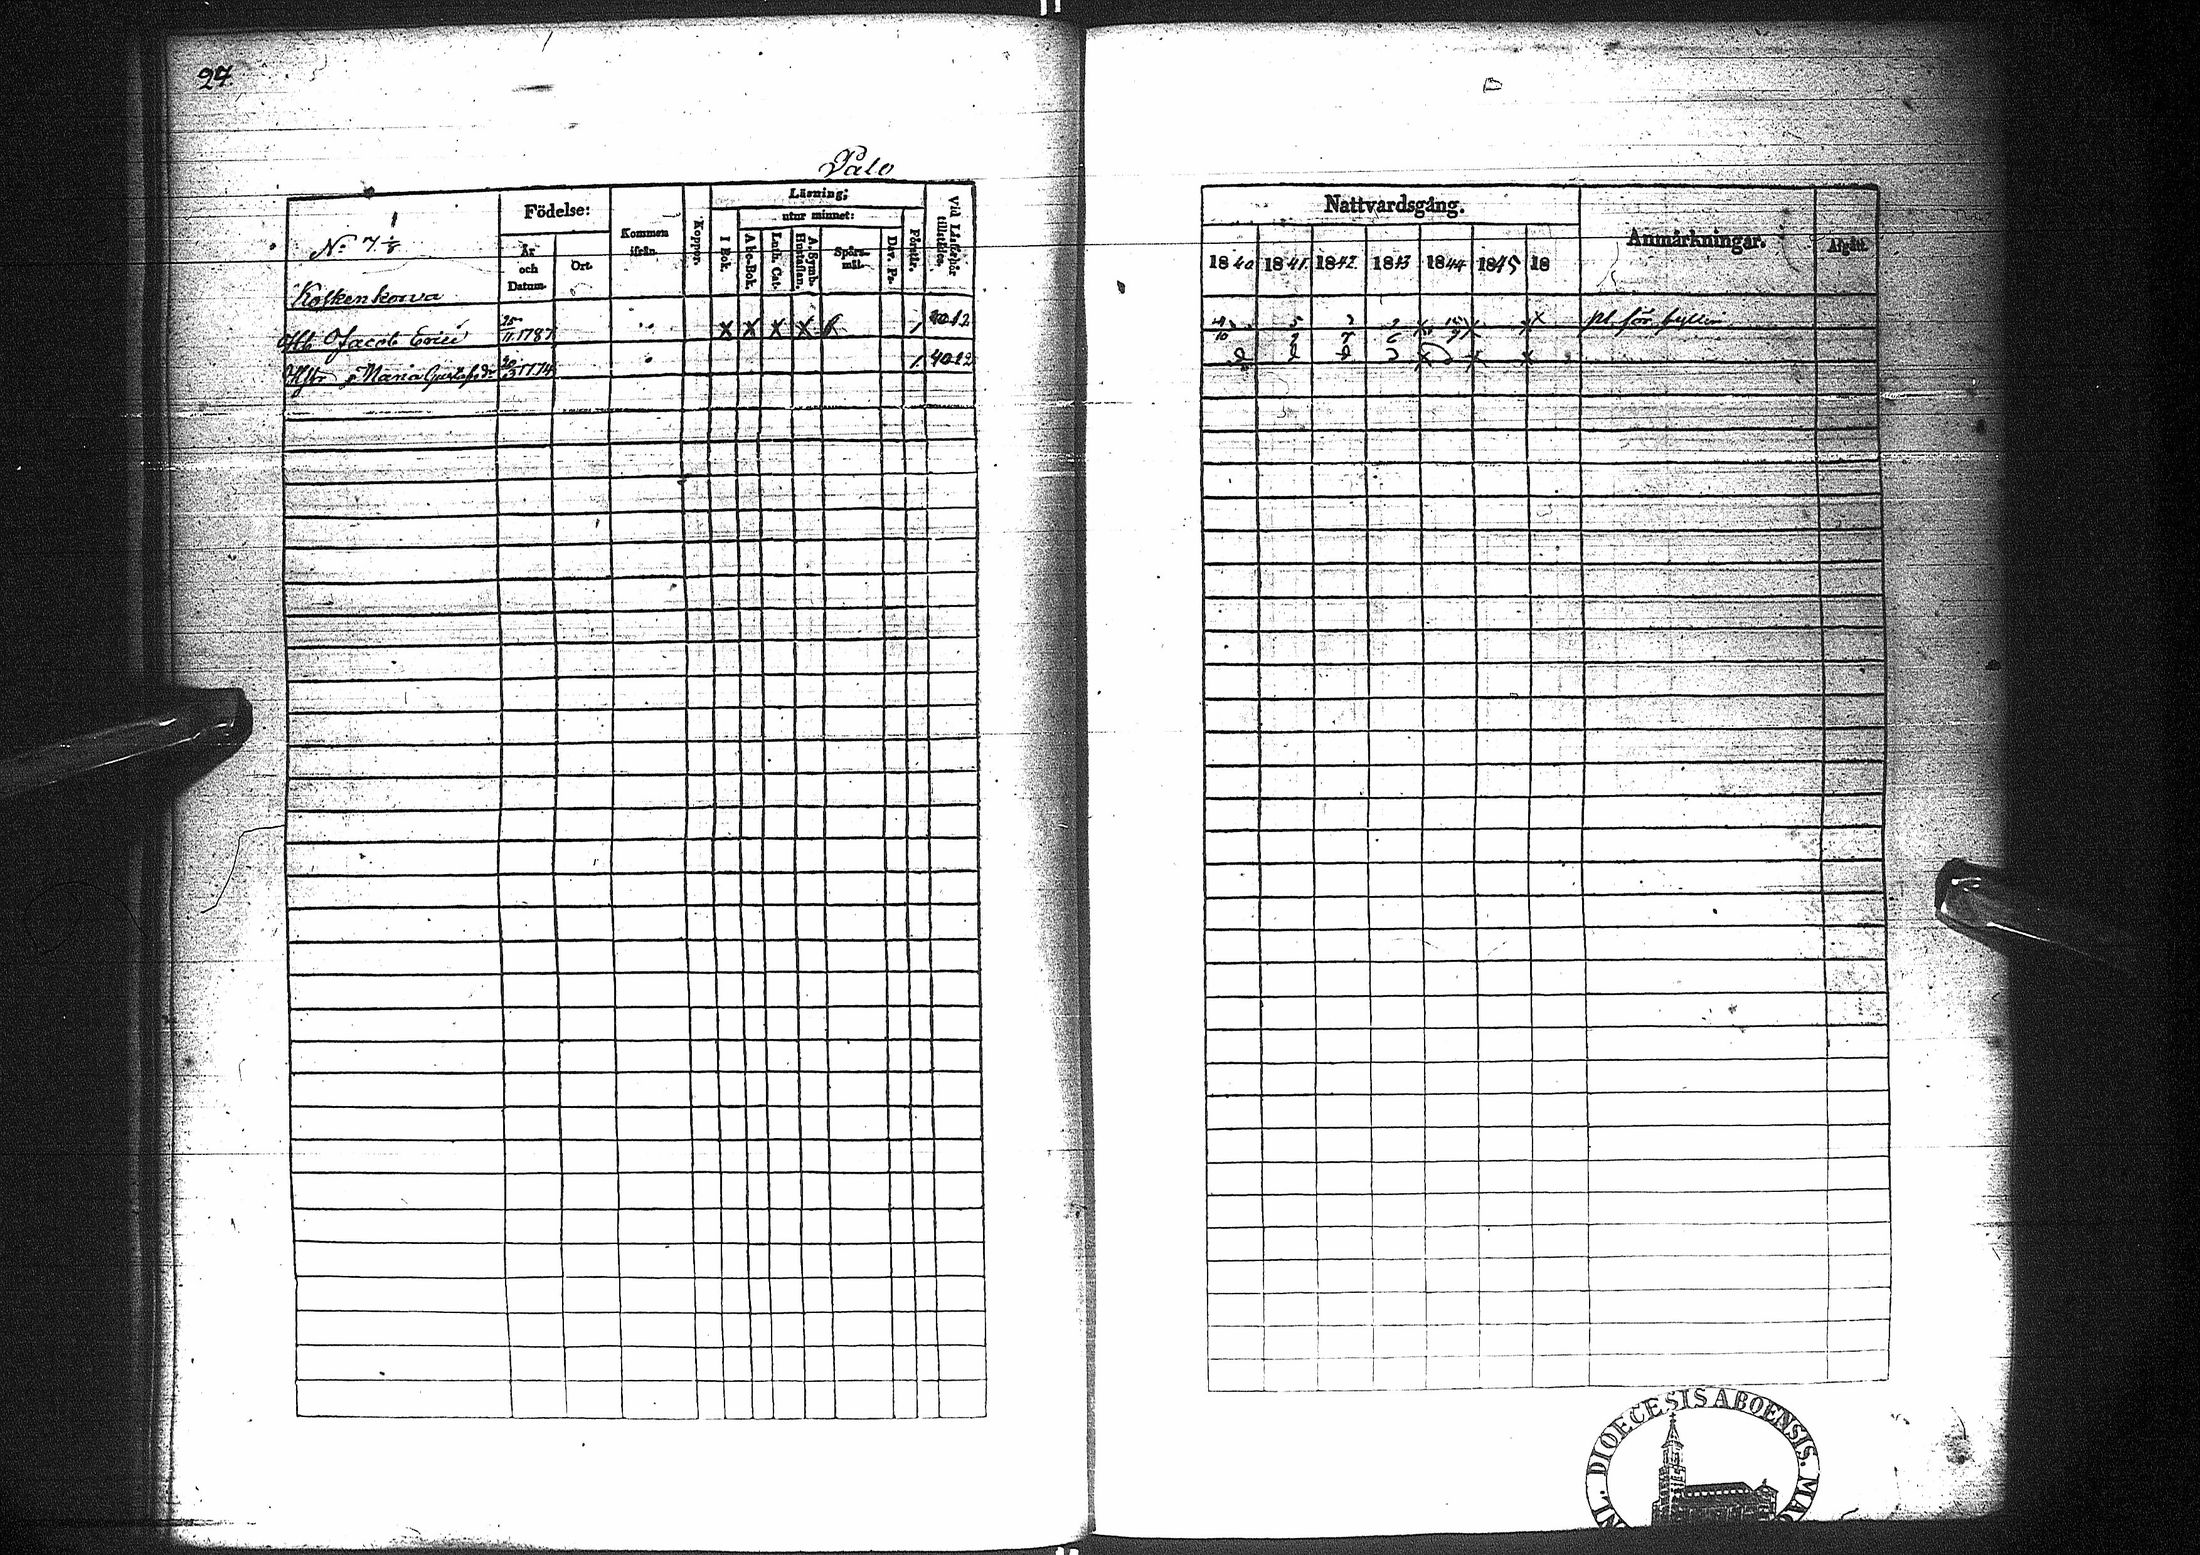 27.
Palo
1
No 7 1/8
Födelse:
År och Datum.
Ort.
Kommen ifrån.
Koppor.
Läsning;
utur minnet:
I Bok.
Abc-Bok.
Luth. Cat.
A. Symb. Hustaflan.
Spörs-mål.
Dav. Ps.
Förstår.
Vid Läsförhör tillstädes.
Koskenkorva
Jacob Erici 25/11 1787 X X X X 1 40 42
Maria Gustafsdr 1774 1 40 42
Nattvardsgång.
1840 1841. 1842. 1843 1844 1845 18
Anmärkningar.
Afgått.
pl. för fylleri
DIOECESIS ABOENSIS. MA